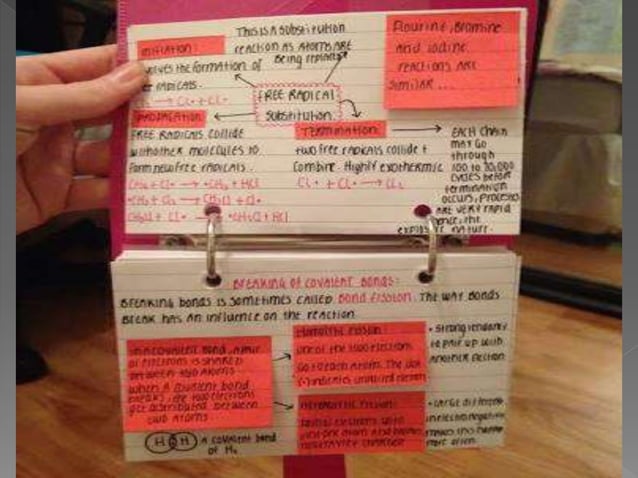 This is a substitution
reaction as atoms are
being replaced
INITIATION:
involves the formation of
radicals.
→ Cl• + Cl•
FREE RADICAL
Substitution.
Flourine, Bromine
and iodine
reactions are
similar...
PROPAGATION
FREE RADICALS COLLIDE
with other molecules to
form new free radicals.
CH4 + Cl• → •CH3 + HCl
•CH3 + Cl2 → CH3Cl + Cl•
CH3Cl + Cl• → •CH2Cl + HCl
TERMINATION
two free radicals collide +
combine. Highly exothermic
Cl• + Cl• → Cl2
EACH chain
may go
through
100 to 10,000
cycles before
termination
occurs, processes
are very rapid
hence, the
explosive nature.
BREAKING OF COVALENT BONDS:
Breaking bonds is sometimes called bond fission. The way bonds
break has an influence on the reaction
In a covalent bond, a pair
of electrons is shared
between two atoms
when a covalent bond
breaks, the two electrons
get distributed between
two atoms
H H A covalent bond
of H2
HOMOLYTIC FISSION:
one of the two electrons
go to each atom. The dot
(•) indicates unpaired electron
• strong tendancy
to pair up with
another electron
HETEROLYTIC FISSION:
just one atom and becomes
negatively charged
• large
in electronegativity
makes this happen
more often